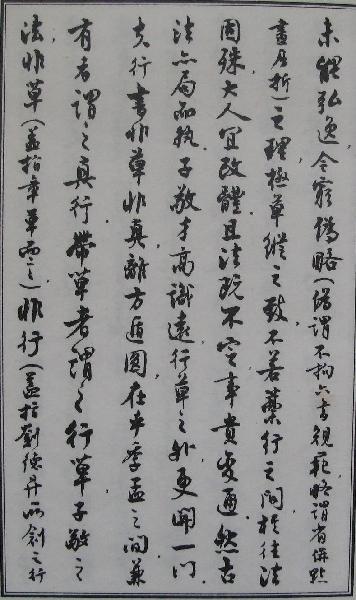 未能弘逸今窮偽略(偽謂不拘六書規範略謂省併點
畫屈折)之理極草縱之致不若藁行之間於往法
固殊大人宜改體且法既不定事貴變通然古
法亦局而執子敬才高識遠行草之外更開一門
夫行書非草非真離方遁圓在乎季孟之間兼
有者謂之真行帶草者謂之行草子敬之
法非草(蓋指章草而言)非行(蓋指劉德升所創之行